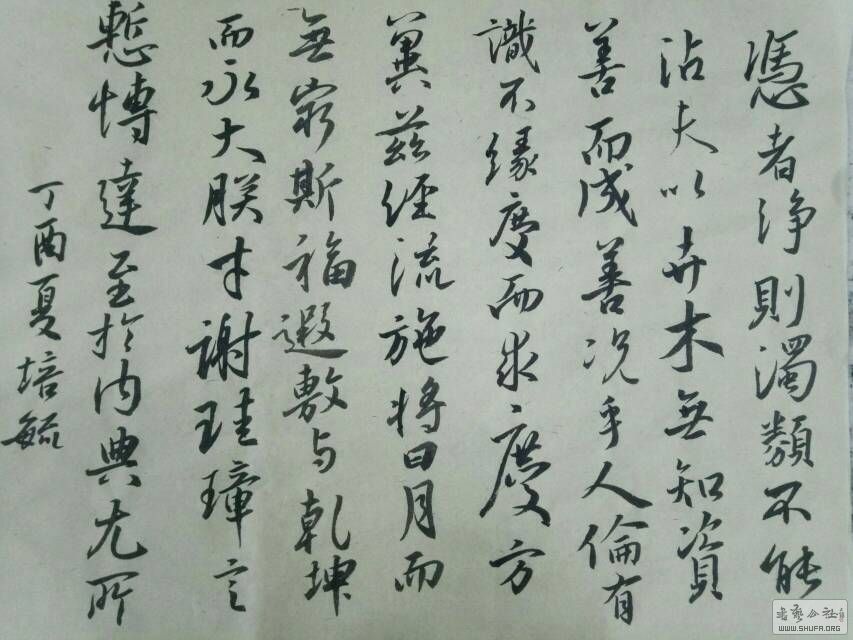 憑者浄則濁類不能
沾夫以卉木無知資
善而成善況乎人倫有
識不緣慶而求慶方
冀茲經流施將日月而
無窮斯福遐敷与乾坤
而永大朕才謝珪璋言
慙博達至於內典尤所
丁酉夏培毓
書藝公社
WWW.SHUFA.ORG